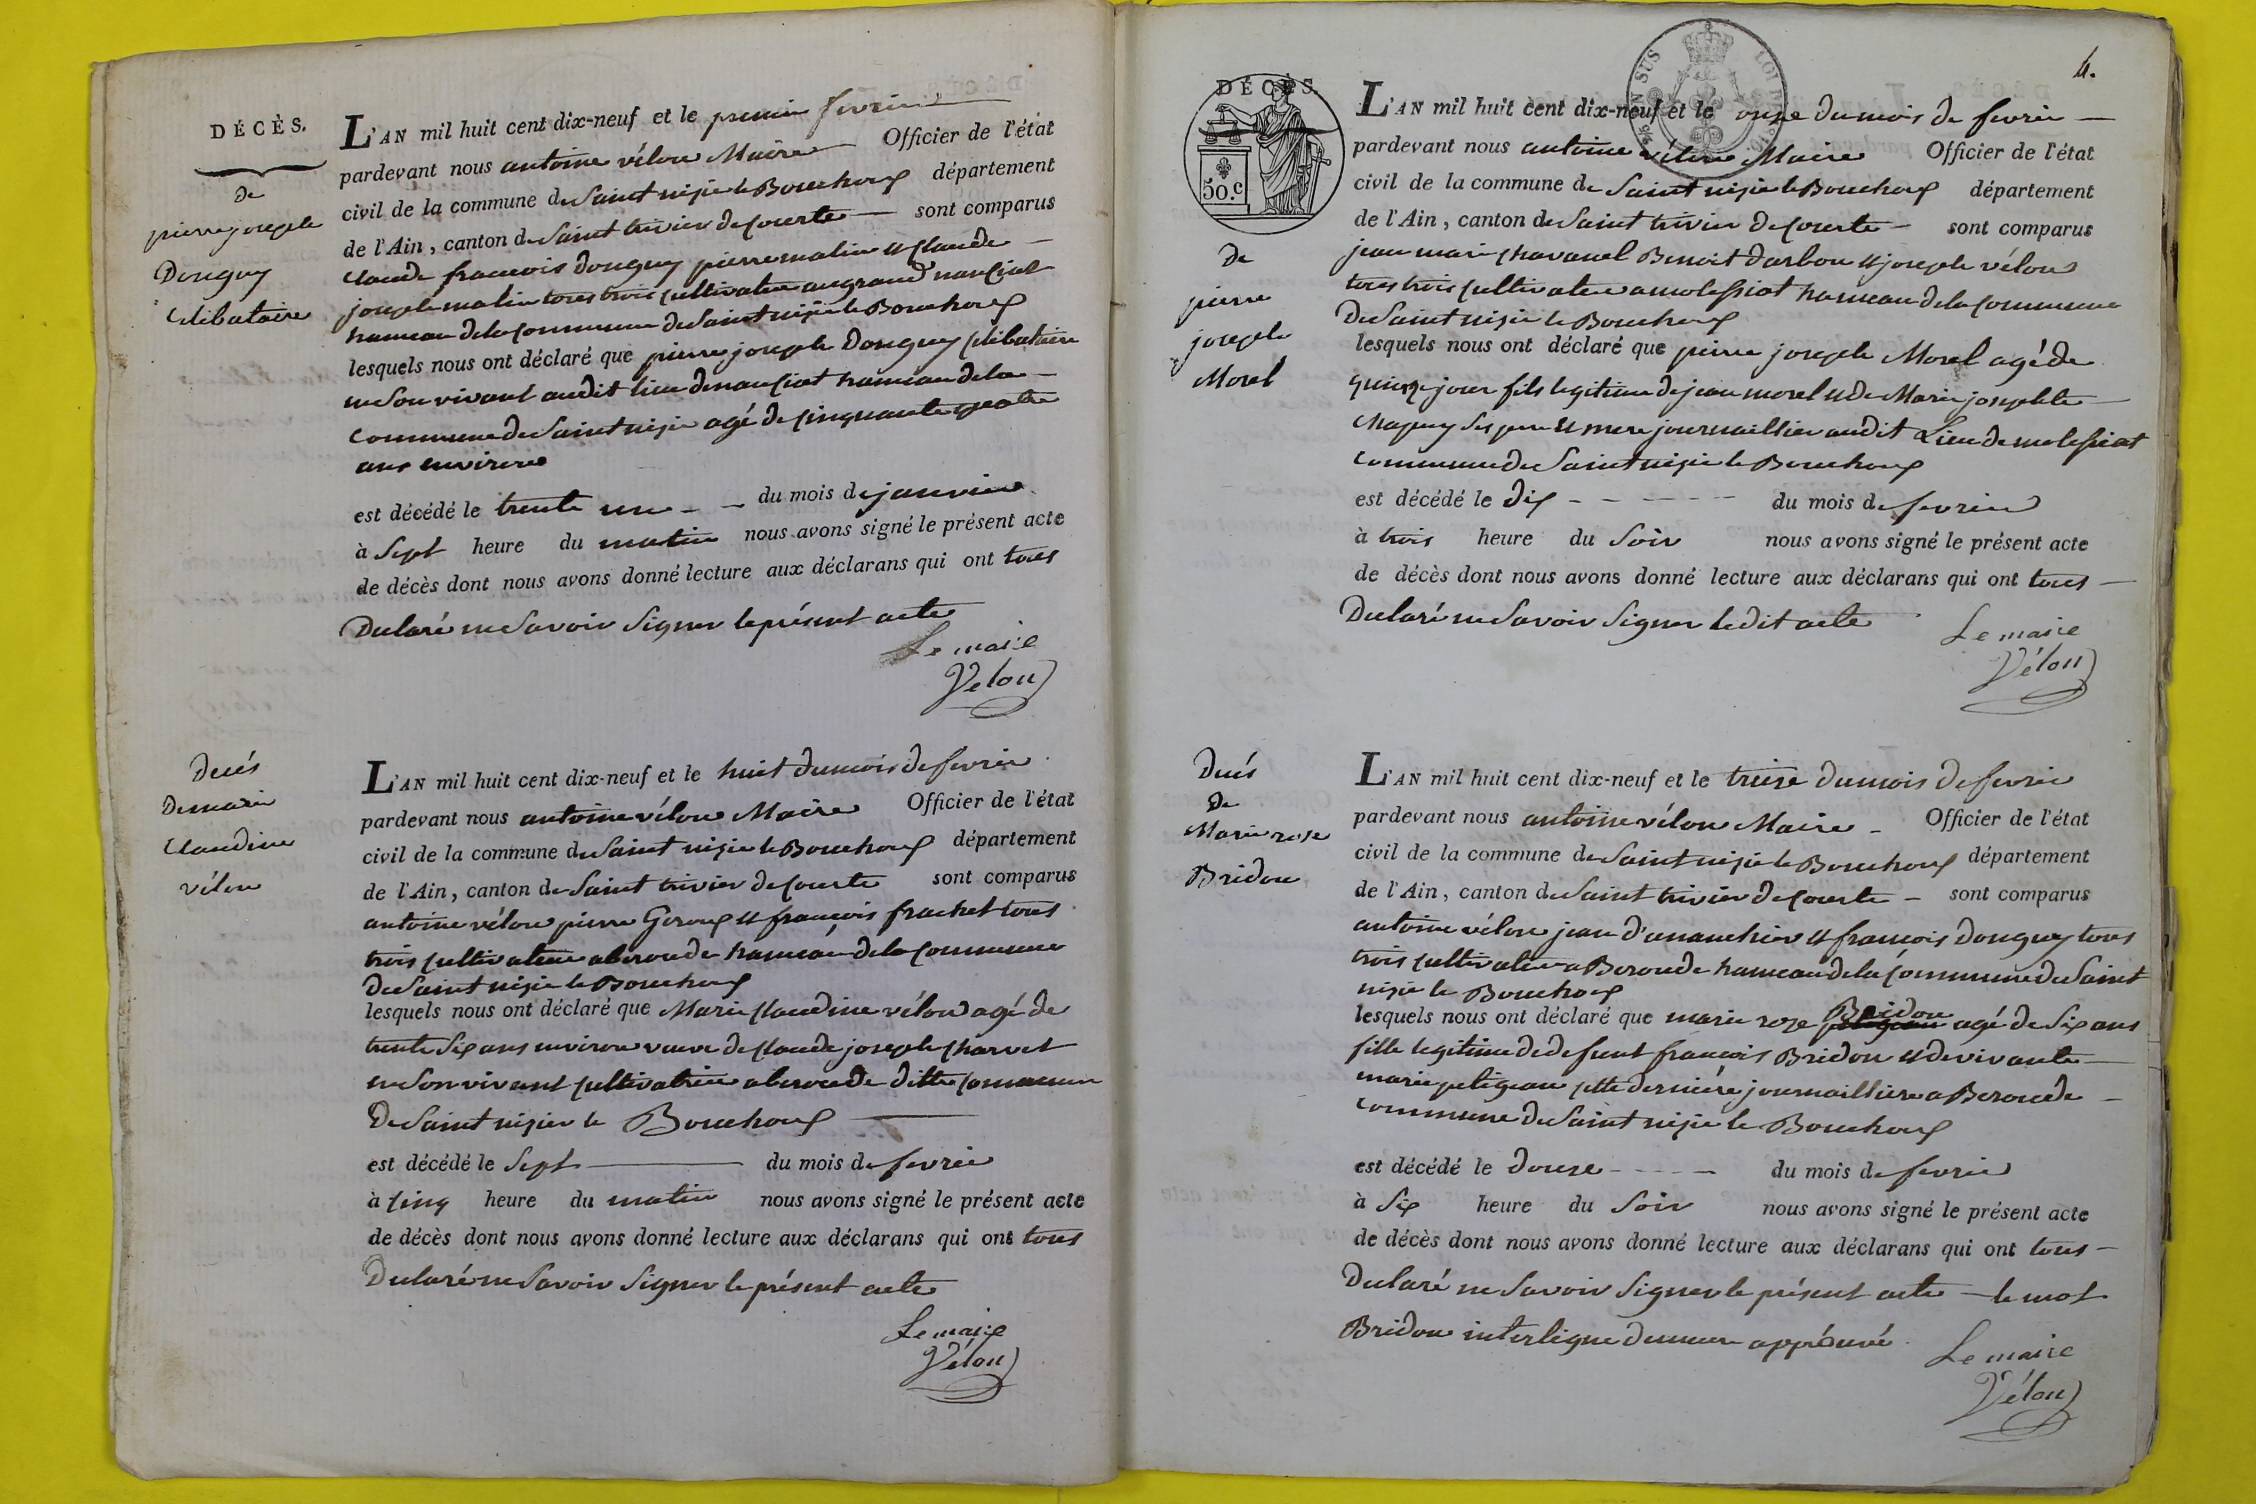 DÉCÈS.
de
pierre joseph
Donguy
Celibataire
L'AN mil huit cent dix-neuf et le premier fevrier
pardevant nous antoine vélon Maire Officier de l'état
civil de la commune de Saint nizie le Bouchoux département
de l'Ain, canton de Saint trivier de Courte sont comparus
Claude francois donguy pierre malin et Claude
joseph malin tous trois cultivateur au grand nanciat
hameau de la commune de Saint nizie le Bouchoux
lesquels nous ont déclaré que pierre joseph Donguy Celibataire
en son vivant audit lieu de nanciat hameau de la
commune de Saint nizie agé de cinquante quatre
ans environ
est décédé le trente un du mois de janvier
à Sept heure du matin nous avons signé le présent acte
de décès dont nous avons donné lecture aux déclarans qui ont tous
Declaré ne Savoir Signer le présent acte
Le maire
Vélon
Decés
De marie
Claudine
vélon
L'AN mil huit cent dix-neuf et le huit du mois de fevrier
pardevant nous antoine vélon Maire Officier de l'état
civil de la commune de Saint nizie le Bouchoux département
de l'Ain, canton de Saint trivier de Courte sont comparus
antoine vélon pierre Geroux et francois frachet tous
trois cultivateur a beroude hameau de la commune
de Saint nizie le Bouchoux
lesquels nous ont déclaré que Marie Claudine vélon agé de
trente Six ans environ veuve de Claude joseph Charvet
en Son vivant cultivatrice a beroude ditte commune
De Saint nizier le Bouchoux
est décédé le Sept du mois de fevrier
à Cinq heure du matin nous avons signé le présent acte
de décès dont nous avons donné lecture aux déclarans qui ont tous
Declaré ne Savoir Signer le présent acte
Le maire
Vélon
4.
DÉCÈS.
50.c
De
pierre
joseph
Morel
L'AN mil huit cent dix-neuf et le onze du mois de fevrier
pardevant nous antoine vélon Maire Officier de l'état
civil de la commune de Saint nizie le Bouchoux département
de l'Ain, canton de Saint trivier de Courte sont comparus
jean marie Chavanel Benoit darbon et joseph vélon
tous trois cultivateur a molessiat hameau de la commune
De Saint nizie le Bouchoux
lesquels nous ont déclaré que pierre joseph Morel agé de
quinze jour fils legitime de jean morel et de Marie josephte
Chapuy Ses pere et mere journaillier audit Lieu de molessiat
commune de Saint nizie le Bouchoux
est décédé le dix du mois de fevrier
à trois heure du Soir nous avons signé le présent acte
de décès dont nous avons donné lecture aux déclarans qui ont tous
Declaré ne Savoir Signer ledit acte
Le maire
Vélon
Decés
De
Marie rose
Bridon
L'AN mil huit cent dix-neuf et le treize du mois de fevrier
pardevant nous antoine vélon Maire Officier de l'état
civil de la commune de Saint nizie le Bouchoux département
de l'Ain, canton de Saint trivier de Courte sont comparus
antoine vélon jean d'ananchier et francois Donguy tous
trois cultivateur a Beroude hameau de la Commune de Saint
nizie le Bouchoux
lesquels nous ont déclaré que marie roze Bridon agé de Six ans
fille legitime de defunt francois Bridon et de vivante
marie peligeau cette derniére journailliere a Beroude
commune de Saint nizie le Bouchoux
est décédé le douze du mois de fevrier
à Six heure du Soir nous avons signé le présent acte
de décès dont nous avons donné lecture aux déclarans qui ont tous
Declaré ne Savoir Signer le présent acte le mot
Bridon interligne demeure approuvé
Le maire
Vélon